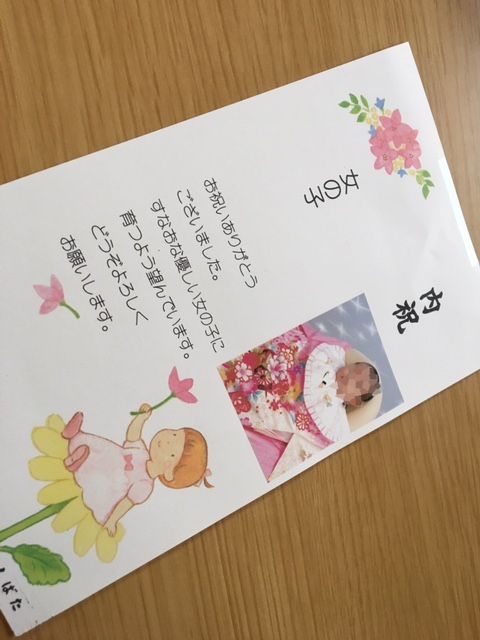 内祝
女の子
お祝いありがとう
ございました。
すなおな優しい女の子に
育つよう望んでいます。
どうぞよろしく
お願いします。
ばた